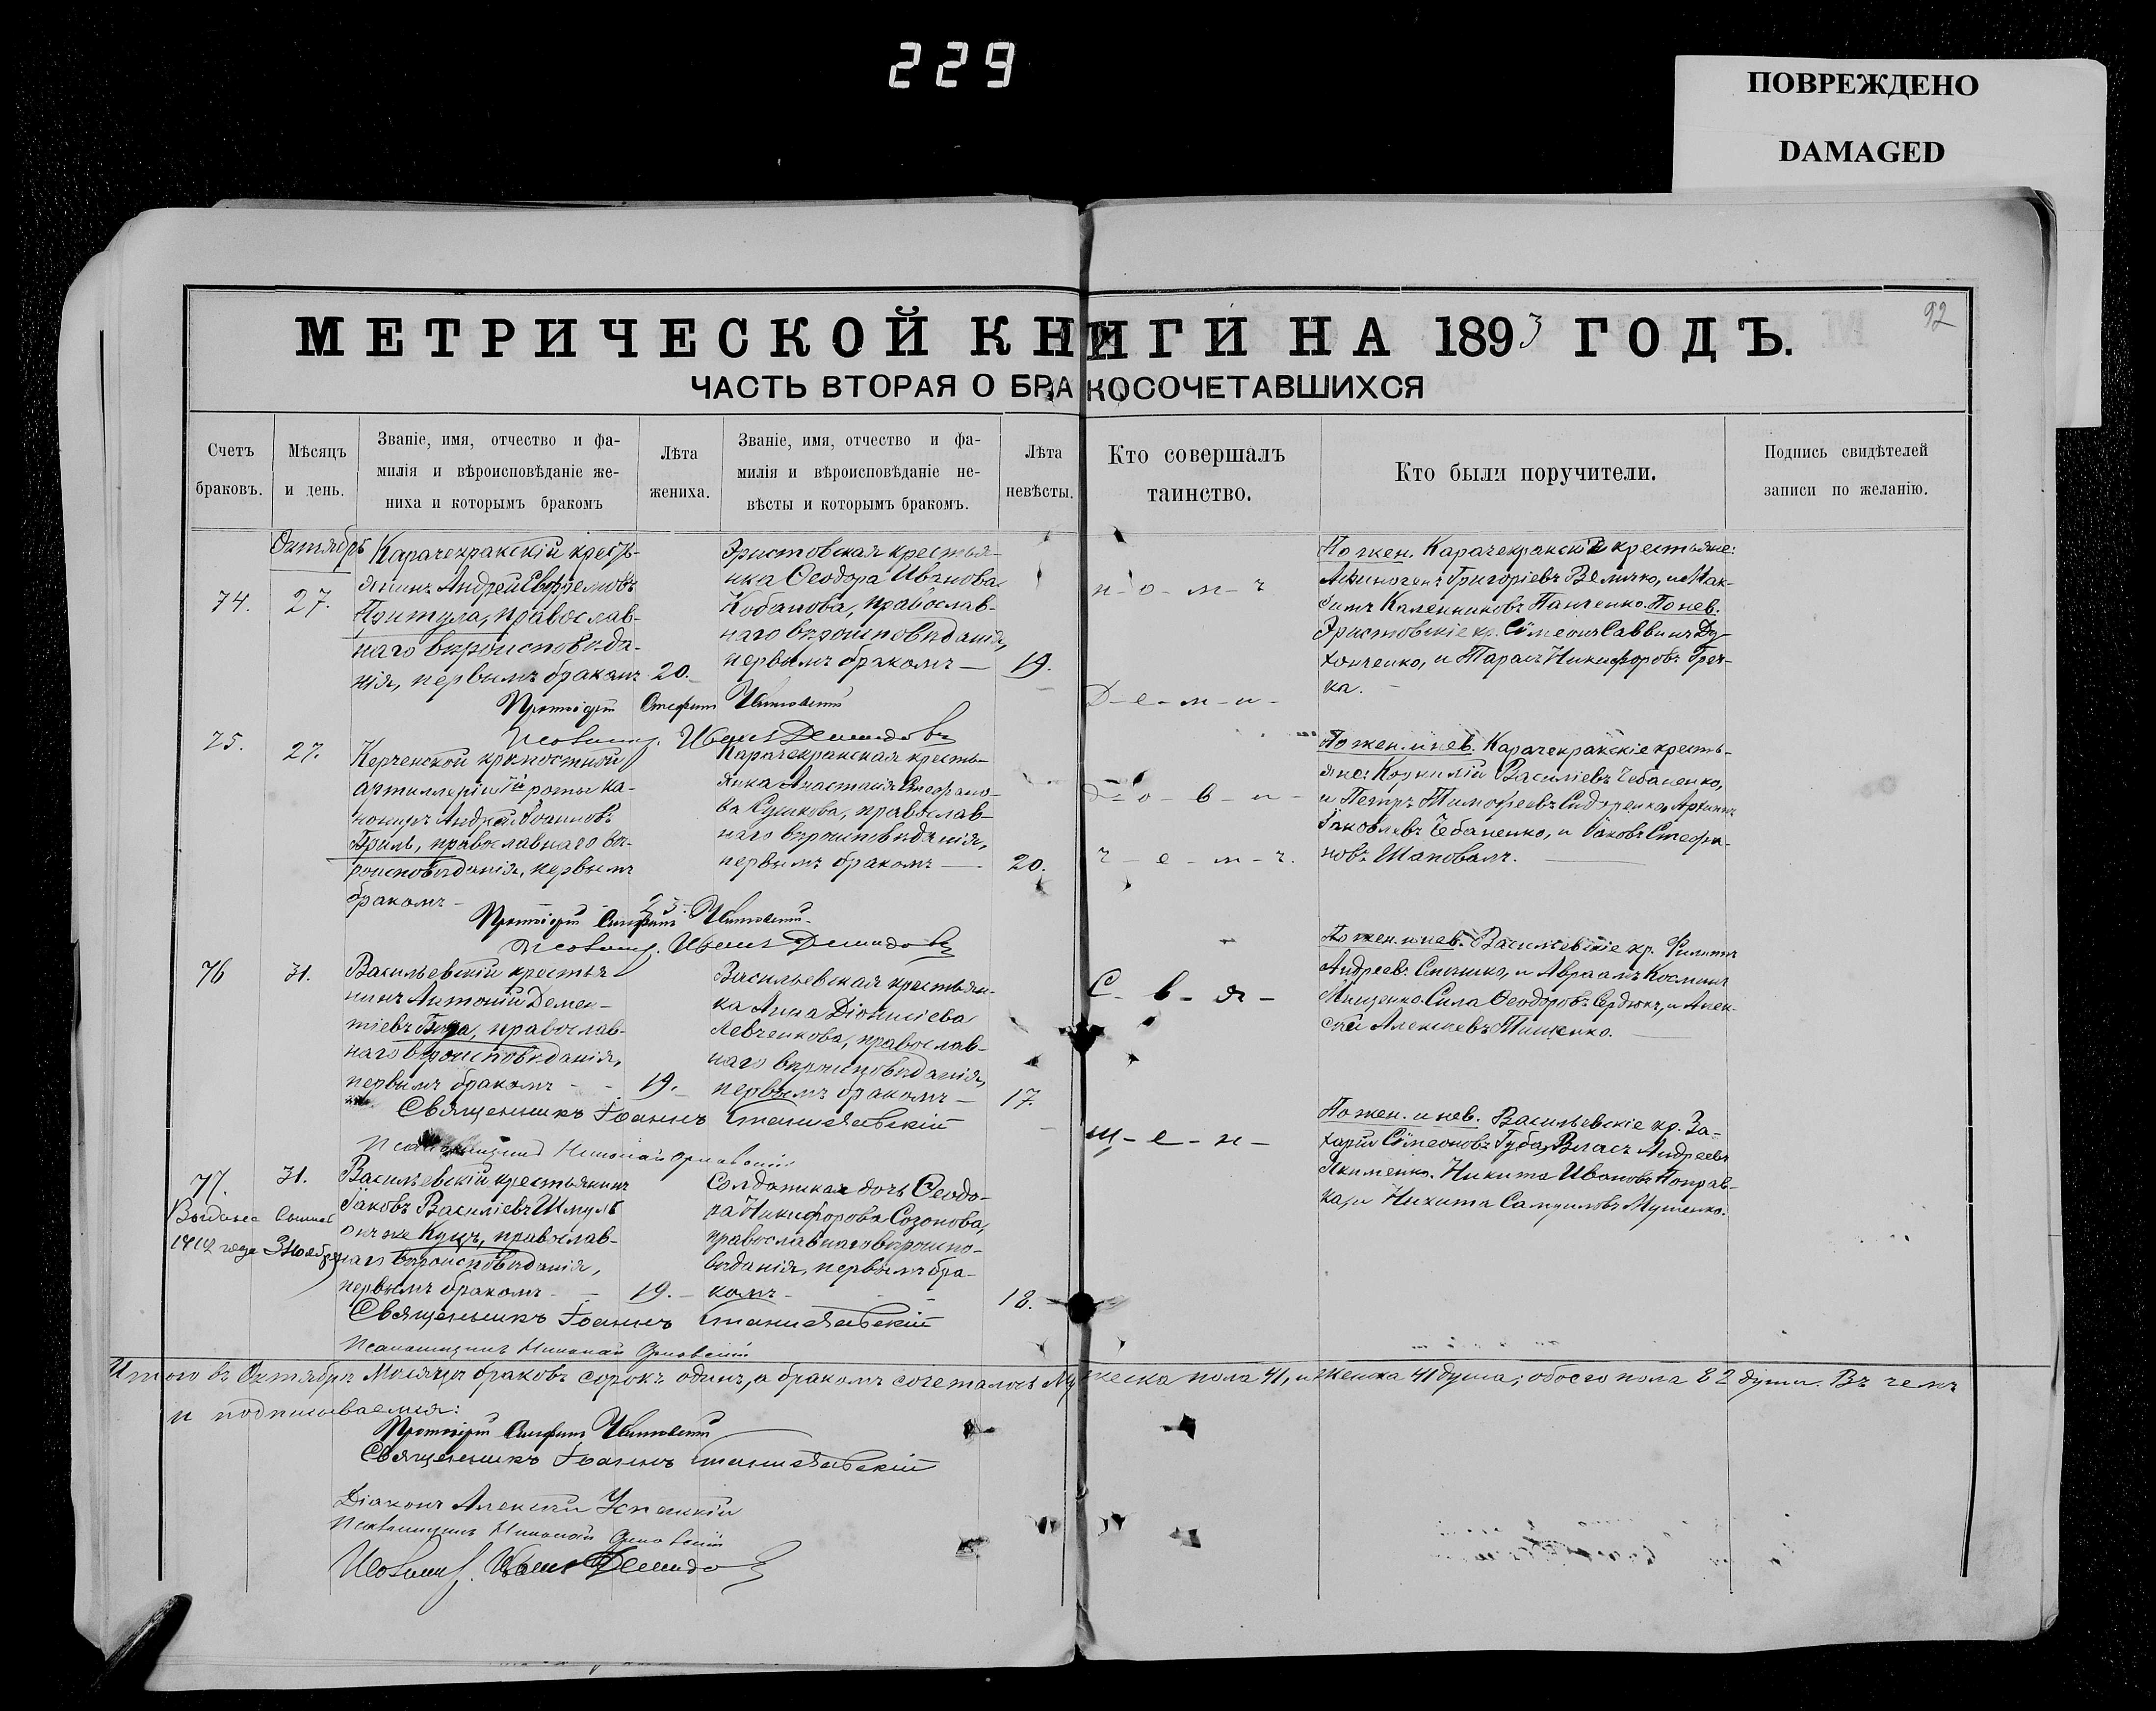 229
ПОВРЕЖДЕНО
DAMAGED
92
МЕТРИЧЕСКОЙ КНИГИ НА 1893 ГОДЪ.
ЧАСТЬ ВТОРАЯ О БРАКОСОЧЕТАВШИХСЯ
Счетъ
браковъ.
Мѣсяцъ
и день.
Званіе, имя, отчество и фа-
милія и вѣроисповѣданіе же-
ниха и которымъ бракомъ
Лѣта
жениха.
Званіе, имя, отчество и фа-
милія и вѣроисповѣданіе не-
вѣсты и которымъ бракомъ.
Лѣта
невѣсты.
Кто совершалъ
таинство.
Кто были поручители.
Подпись свидѣтелей
записи по желанію.
Октябрь
74.
27.
Карачекракскій кресть-
янинъ Андрей Евфремовъ
Притула, православ-
наго вѣроисповѣда-
нія, первымъ бракомъ
20.
Эристовская крестья-
нка Ѳеодора Иванова
Кобанова, православ-
наго вѣроисповѣданія,
первымъ бракомъ —
19.
п-о-м-ъ
По жен. Карачекракскіе крестьяне:
Аѳиногенъ Григоріевъ Величко, и Мак-
симъ Каленниковъ Панченко. По нев.
Эристовскіе кр. Сѵмеонъ Саввинъ До-
хонченко, и Тарасъ Никифоровъ Греч-
ка. —
Протоіерей Стефанъ
Псаломщ. Иванъ Демидовъ
Д-е-м-и-
75.
27.
Керченской крѣпостной
артиллеріи роты ка-
нониръ Андрей Іоанновъ
Бриль, православнаго вѣ-
роисповѣданія, первымъ
бракомъ —
23.
Карачекракская кресть-
янка Анастасія Стефано-
ва Сушкова, православ-
наго вѣроисповѣданія,
первымъ бракомъ —
20.
Д-о-в-и-
ч-е-м-ъ.
По жен. и нев. Карачекракскіе кресть-
яне: Корнилій Василіевъ Чебаненко,
и Петръ Тимофеевъ Сидоренко, Архипъ
Іаковлевъ Чебаненко, и Іаковъ Стефа-
новъ Шаповалъ. —
Протоіерей Стефанъ
Псаломщ. Иванъ Демидовъ
76
31.
Васильевскій крестья-
нинъ Антоній Демен-
тіевъ православ-
наго вѣроисповѣданія,
первымъ бракомъ - -
19.
Васильевская крестьян-
ка Анна Діонисіева
Левченкова, православ-
наго вѣроисповѣданія,
первымъ бракомъ —
17.
С-в-я-
По жен. и нев. Васильевскіе кр. Филиппъ
Андреевъ и Авраамъ Косминъ
Мищенко. Сила Ѳеодоровъ Сердюкъ, и Алек-
сѣй Алексѣевъ Тищенко. —
Священникъ Іоаннъ Станиславскій
Псаломщикъ Николай Орловскій
щ-е-н-
77.
31.
Васильевскій крестьянинъ
Іаковъ Василіевъ Шмуль
онъ же Куцъ, православ-
наго вѣроисповѣданія,
первымъ бракомъ - —
19.
Солдатская дочь Ѳеодо-
ра Никифорова Созонова,
православнаго вѣроиспо-
вѣданія, первымъ бра-
комъ -
18.
По жен. и нев. Васильевскіе кр. За-
харій Сѵмеоновъ Губа, Власъ Андреевъ
Якименко. Никита Ивановъ Поправ-
ка, и Никита Самуиловъ Мушенко.
Выдана
1912 года 3 Ноября
Священникъ Іоаннъ Станиславскій
Псаломщикъ Николай Орловскій
Итого въ Октябрѣ Мѣсяцѣ браковъ сорокъ одинъ, а бракомъ сочеталось Мужеска пола 41, и Женска 41 душа; обоего пола 82 души. Въ чемъ
и подписываемся:
Протоіерей Стефанъ
Священникъ Іоаннъ Станиславскій
Діаконъ Алексѣй Успенскій
Псаломщикъ Николай Орловскій
Псаломщ. Иванъ Демидовъ